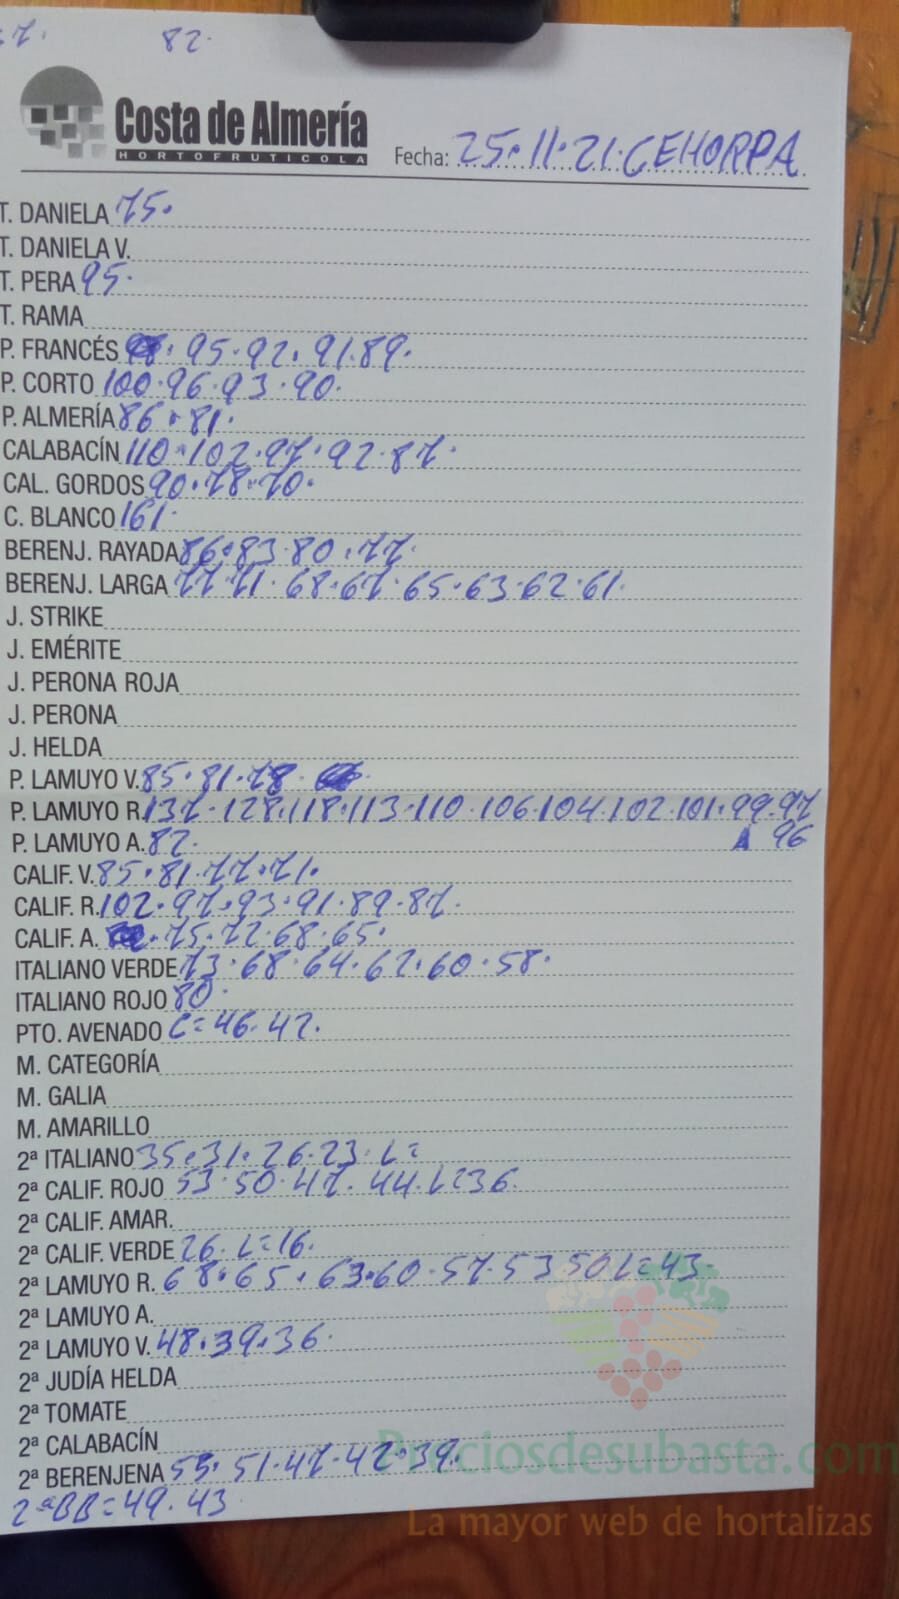 82.
Costa de Almería
HORTOFRUTICOLA
Fecha: 25.11.21.CEHORPA
T. DANIELA 75.
T. DANIELA V.
T. PERA 95.
T. RAMA
P. FRANCÉS . 95.92.91.89.
P. CORTO 100.96.93.90.
P. ALMERÍA 86.81.
CALABACÍN 110.102.97.92.87.
CAL. GORDOS 90.78.70.
C. BLANCO 161.
BERENJ. RAYADA 86.83.80.77.
BERENJ. LARGA 77.71.68.67.65.63.62.61.
J. STRIKE
J. EMÉRITE
J. PERONA ROJA
J. PERONA
J. HELDA
P. LAMUYO V. 85.81.78.
P. LAMUYO R. 137.128.118.113.110.106.104.102.101.99.97
P. LAMUYO A. 82. A 96
CALIF. V. 85.81.77.71.
CALIF. R. 102.97.93.91.89.87.
CALIF. A. . 75.72.68.65.
ITALIANO VERDE 73.68.64.62.60.58.
ITALIANO ROJO 80.
PTO. AVENADO C=46.42.
M. CATEGORÍA
M. GALIA
M. AMARILLO
2ª ITALIANO 35.31.26.23.L=
2ª CALIF. ROJO 53.50.47.44.L=36.
2ª CALIF. AMAR.
2ª CALIF. VERDE 26.L=16.
2ª LAMUYO R. 68.65.63.60.57.53 50 L=43.
2ª LAMUYO A.
2ª LAMUYO V. 48.39.36.
2ª JUDÍA HELDA
2ª TOMATE
2ª CALABACÍN
Preciosdesubasta.com
2ª BERENJENA 55.51.47.42.39.
2ªBB=49.43
La mayor web de hortalizas